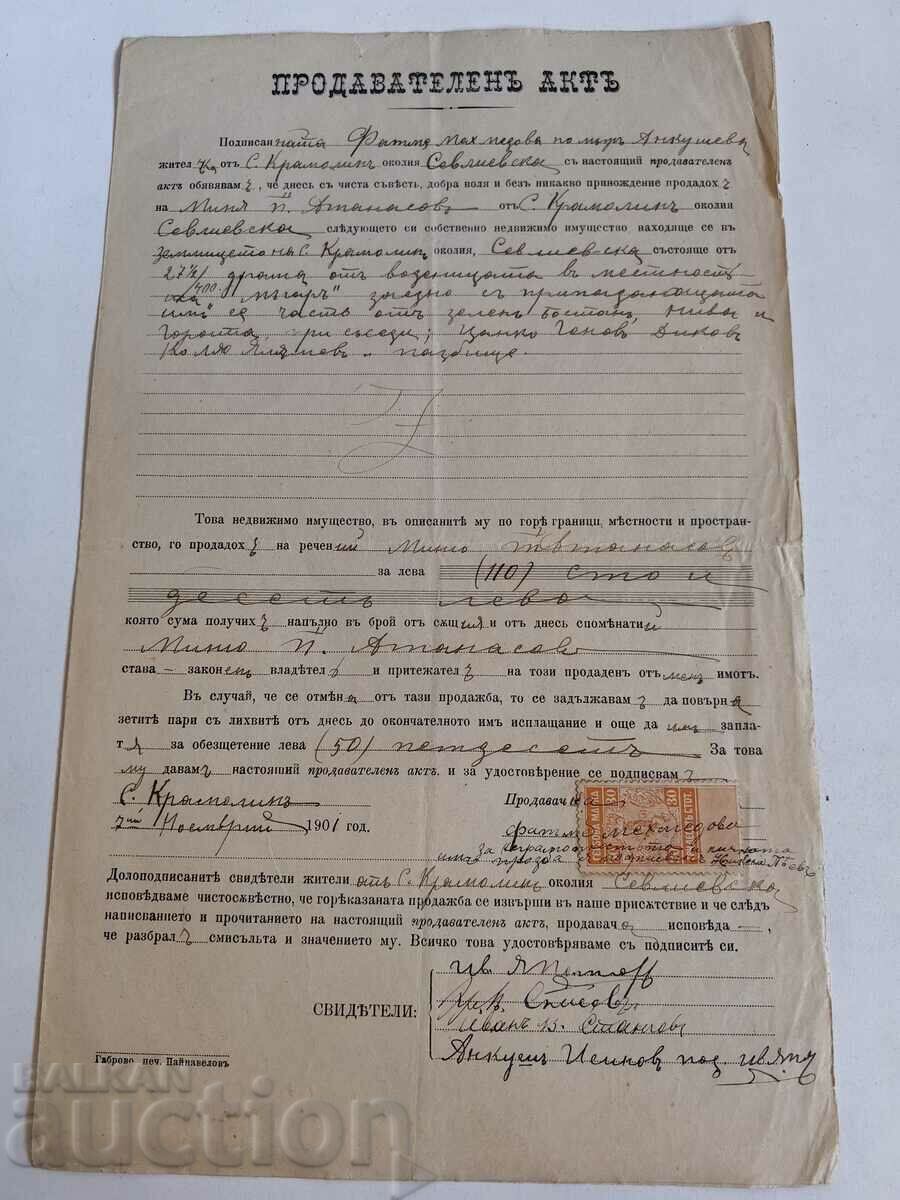 ПРОДАВАТЕЛЕНЪ АКТЪ
Подписанната Фатме Мехмедова по мъжъ Анкушева
жителка отъ С. Крамолинъ околия Севлиевска съ настоящий продавателен
актъ обявявамъ, че днесь съ чиста съвѣсть, добра воля и безъ никакво принождение продадохъ
на Миня П. Атанасовъ отъ С. Крамолинъ околия
Севлиевска слѣдующето си собственно недвижимо имущество находяще се въ
землището на С. Крамолинъ околия, Севлиевска състояще отъ
27½/400 драма отъ воденицата въ местностъ
заедно съ припадающата
имъ се часть отъ зеленъ бостанъ, нива и
гората, при съседи; Цанко Геновъ, Диковъ
Колю и
Това недвижимо имущество, въ описанитѣ му по горѣ граници, мѣстности и простран-
ство, го продадохъ на реченний Миню П. Атанасовъ
за лева (110) сто и
десетъ лева
която сума получихъ напълно въ брой отъ сѫщия и отъ днесь споменатий
Миню П. Атанасовъ
става – законенъ владѣтель и притежатель на този продаденъ отъ менъ имотъ.
Въ случай, че се отмѣня отъ тази продажба, то се задължавамъ да повърна
зетитѣ пари съ лихвитѣ отъ днесь до окончателното имъ исплащание и още да имъ запла-
тя за обезщетение лева (50) петдесетъ За това
му давамъ настоящий продавателенъ актъ и за удостовѣрение се подписвамъ
С. Крамолинъ Продавачка
7ий Ноемврий 1901 год.
30 ГЕРБОВА МАРКА 30 СТОТ.
Фатме Мехмедова
за неграмотността и личната
Долоподписанитѣ свидѣтели жители отъ С. Крамолинъ околия Севлиевска
исповѣдваме чистосъвѣстно, че горѣказаната продажба се извърши въ наше присѫтствие и че слѣдъ
написванието и прочитанието на настоящий продавателенъ актъ, продавача исповѣда –,
че разбралъ смисъльта и значението му. Всичко това удостовѣряваме съ подписитѣ си.
СВИДѢТЕЛИ:
Иванъ В. Станчовъ
Анкушъ под.
Габрово печ. Пайнавеловъ
BALKAN
auction